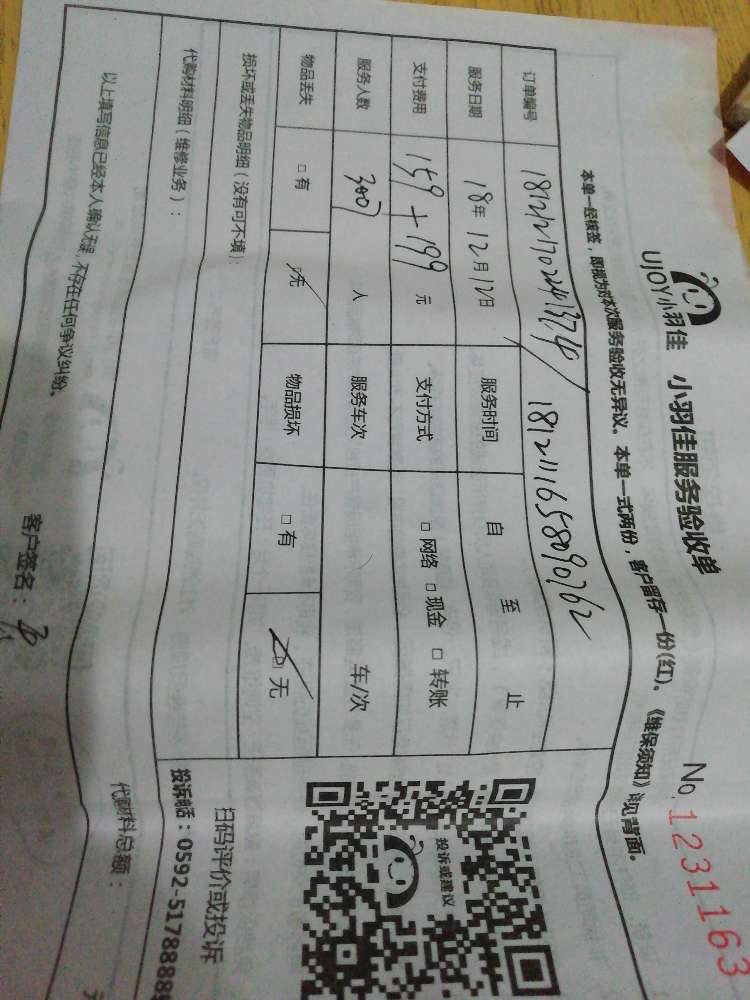 UJOY小羽佳 小羽佳服务验收单
No.1231163
本单一经核签，即视为对本次服务验收无异议。本单一式两份，客户留存一份(红)。《维保须知》见背面。
订单编号 / 1812111658090762
服务日期 18年12月12日 服务时间 自 至 止
支付费用 159+199 元 支付方式 □网络 □现金 □转账
服务人数 人 服务车次 车/次
物品丢失 □有 □无 物品损坏 □有 □无
损坏或丢失物品明细（没有可不填）：
代购材料明细（维修业务）：
代购材料总额：
以上填写信息已经本人确认无误，不存在任何争议纠纷。
客户签名：
投诉或建议
扫码评价或投诉
投诉电话：0592-5178888